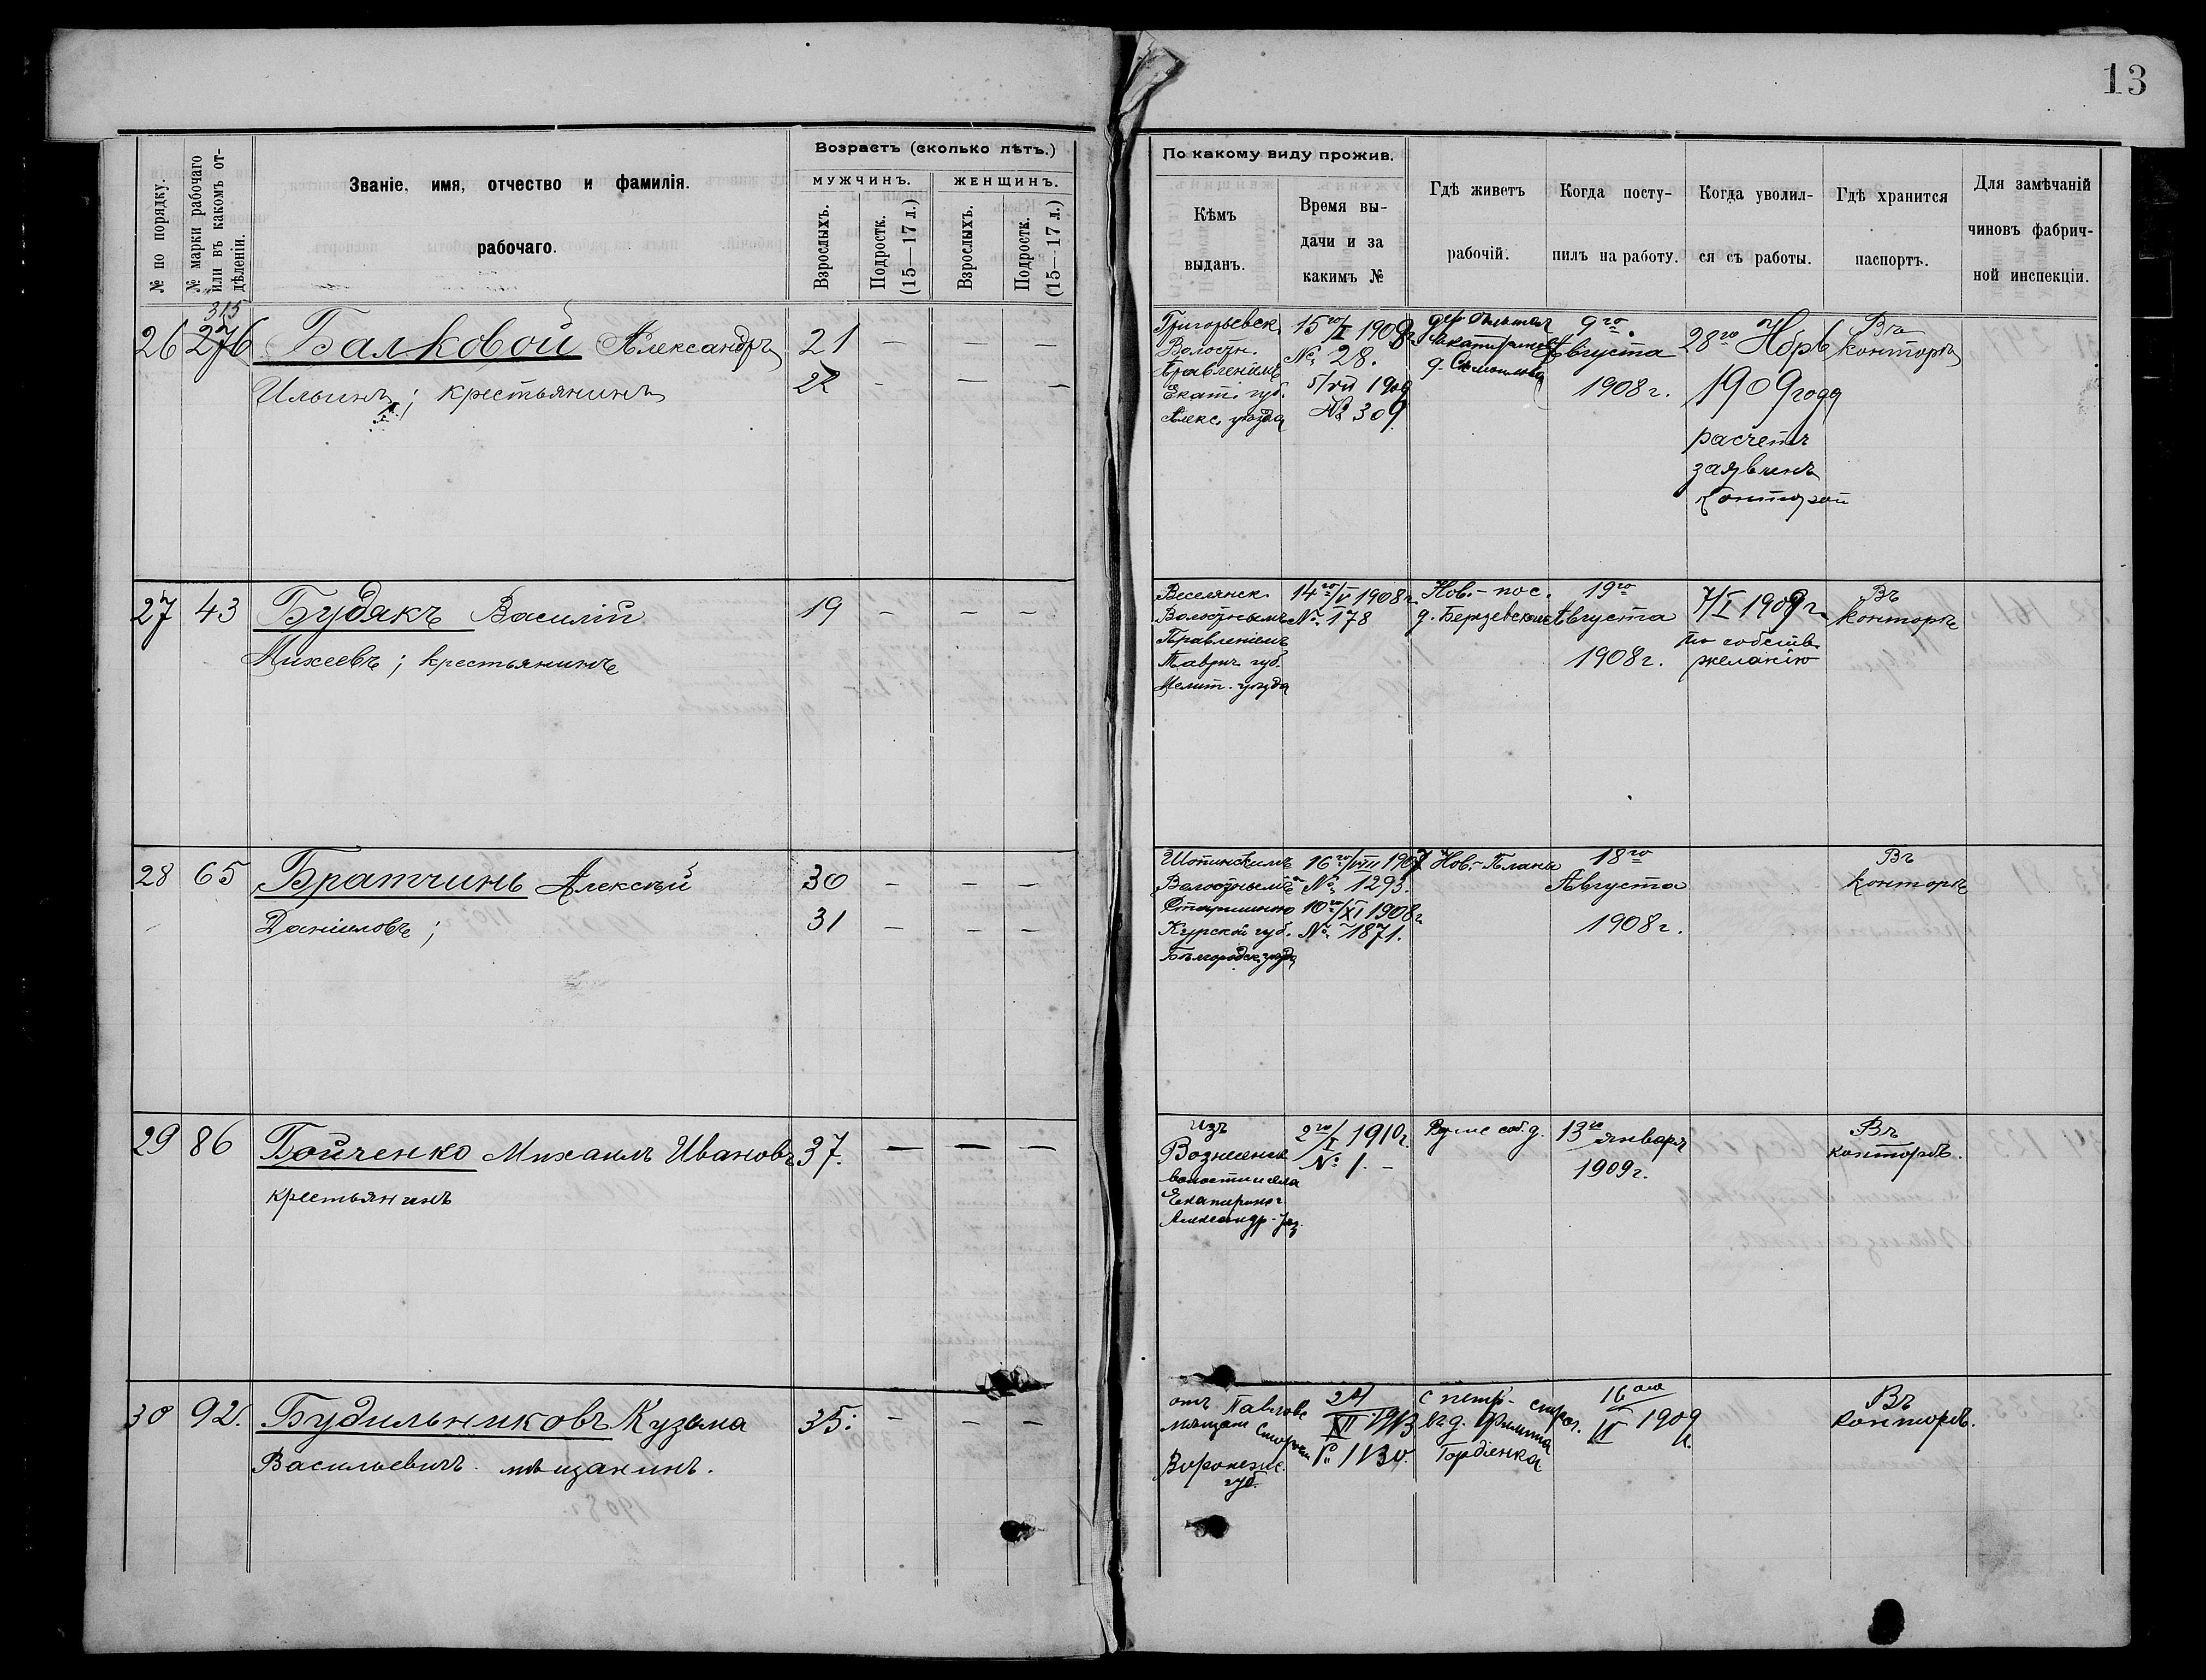 13
№ по порядку.
№ марки рабочаго или въ какомъ отдѣленіи.
Званіе, имя, отчество и фамилія.
рабочаго.
Возрастъ (сколько лѣтъ.)
МУЖЧИНЪ.
ЖЕНЩИНЪ.
Взрослыхъ.
Подростк. (15—17 л.)
Взрослыхъ.
Подростк. (15—17 л.)
По какому виду прожив.
Кѣмъ
выданъ.
Время вы-
дачи и за
какимъ №
Гдѣ живетъ
рабочій.
Когда посту-
пилъ на работу.
Когда уволил-
ся съ работы.
Гдѣ хранится
паспортъ.
Для замѣчаній
чиновъ фабрич-
ной инспекціи.
315
26 276 Балковой Александръ 21 — — —
Ильинъ; крестьянинъ 22 — — —
Григорьевск.
Волостн.
Правленіемъ
Екат. губ.
Алекс. уѣзда
15го/I 1908г.
№ 28.
5/VII 1909
№ 309
9го
Августа
1908 г.
28го Нбрѣ
1909 года
расчетъ
заявленъ
Конторой
Въ
конторѣ
27 43 Будякъ Василій 19 — — —
Михеевъ; крестьянинъ
Веселянск.
Волостнымъ
Правленіемъ
Таврич. губ.
Мелит. уѣзда
14го/V 1908 г.
№ 178
Нов.-пос.
19го
Августа
1908 г.
7/I 1909 г.
по собств.
желанію
Въ
Конторѣ
28 65 Братчинъ Алексѣй 30 — — —
Даніиловъ; 31 — — —
Волостнымъ
Старшиною
Курской губ.
Бѣлгородск. уѣзда
16го/VIII 1907
№ 1293.
10го/XI 1908 г.
№ 1871.
Нов.-Планы
18го
Августа
1908 г.
Въ
Конторѣ
29 86 Бойченко Михаилъ Ивановъ 37. — — —
крестьянинъ
Изъ
Вознесенск
волости села
Екатериног.
Александр. уѣз.
2го/I 1910 г.
№ 1. —
13го января
1909 г.
Въ
конторѣ.
30 92. Будильниковъ Кузьма 35. — — —
Васильевичъ. мѣщанинъ.
отъ Павловс
мѣщан Старост
Воронеж.
губ.
24
XII 1913
№ 1130.
с петр-
Филиппа
Гордіенка
16ого
II 1909
Въ
конторѣ.